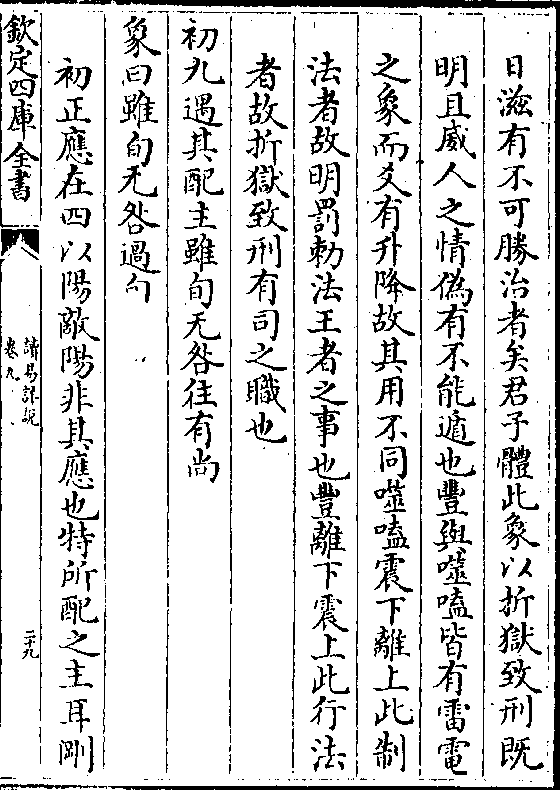 日滋有不可勝治者矣君子體此象以折獄致刑既
明且威人之情偽有不能遁也豐與噬嗑皆有雷電
之象而爻有升降故其用不同噬嗑震下離上此制
法者故明罰勅法王者之事也豐離下震上此行法
者故折獄致刑有司之職也
初九遇其配主雖旬无咎往有尚
象曰雖旬无咎過旬
初正應在四以陽敵陽非其應也特所配之主耳剛
欽定四庫全書
讀易詳說
卷九
二十九